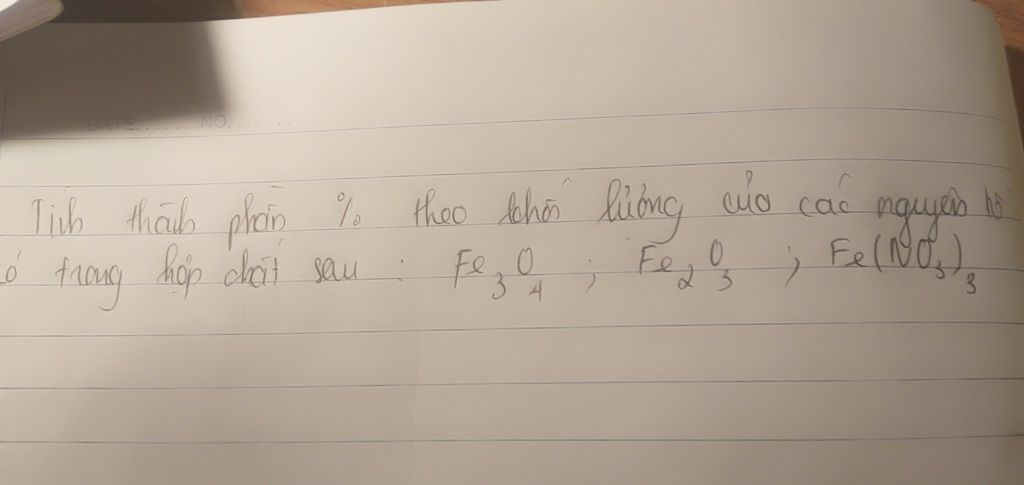 DATE.......NO.......
Tính thành phần % theo khối lượng của các nguyên tố
có trong hợp chất sau : Fe₃O₄ ; Fe₂O₃ ; Fe(NO₃)₃